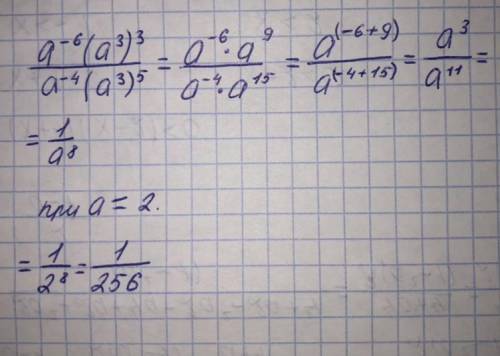 a⁻⁶(a³)³ / a⁻⁴(a³)⁵ = a⁻⁶·a⁹ / a⁻⁴·a¹⁵ = a⁽⁻⁶⁺⁹⁾ / a⁽⁻⁴⁺¹⁵⁾ = a³ / a¹¹ =
= 1 / a⁸
при a = 2.
= 1 / 2⁸ = 1 / 256